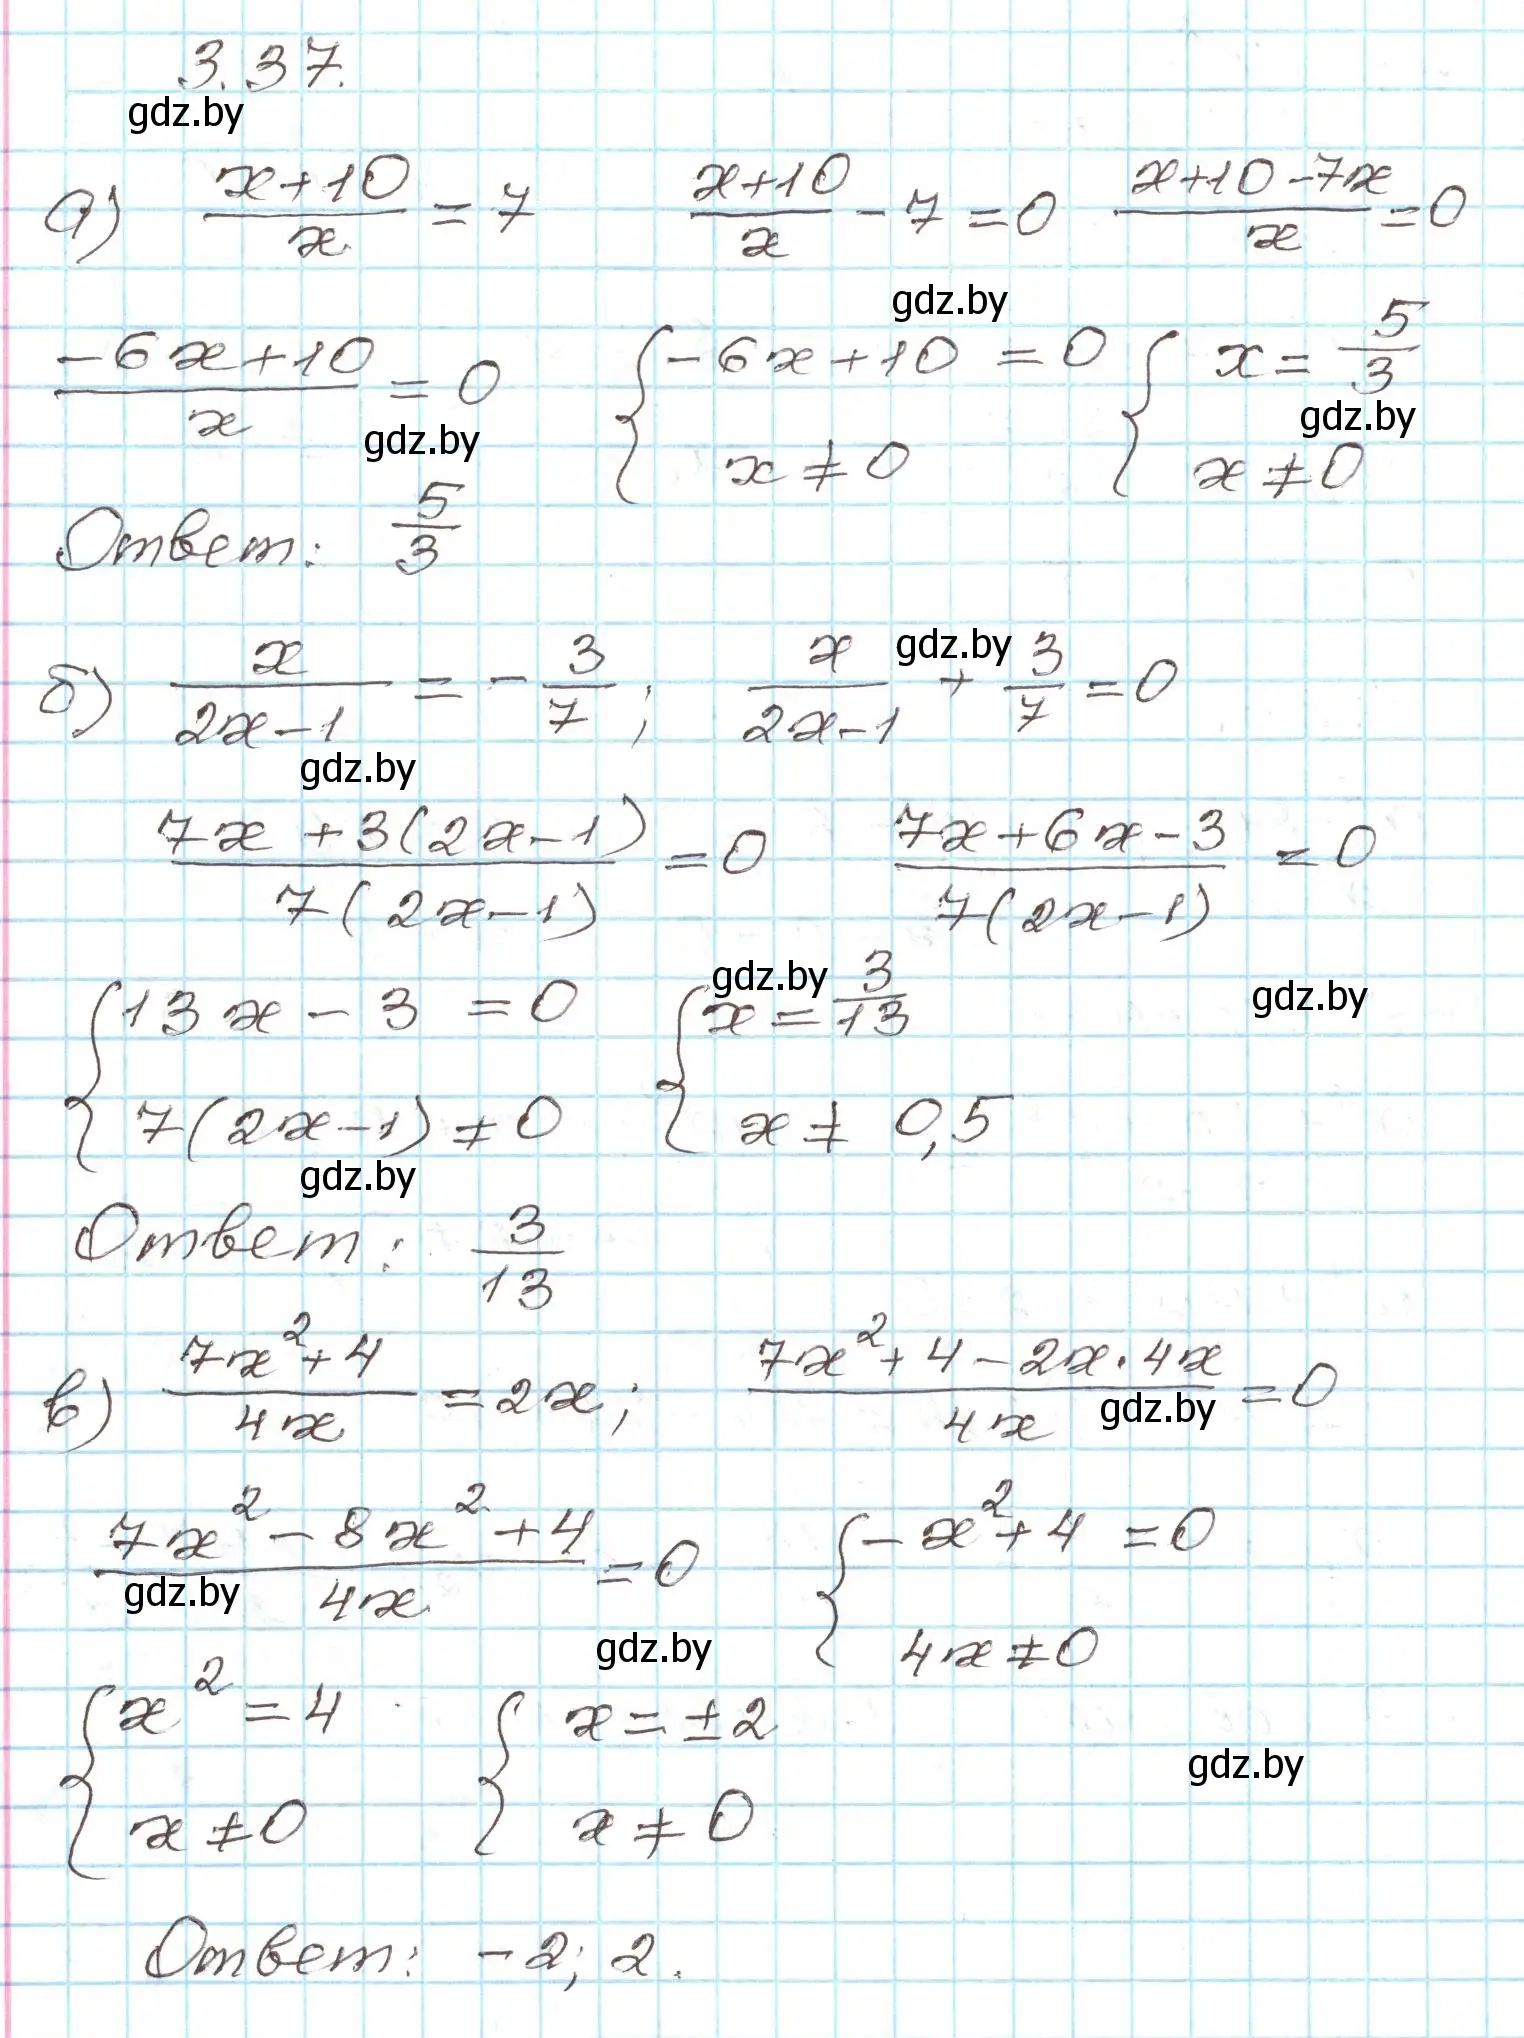 3.37.
gdz.by
а) (x+10)/x = 7   (x+10)/x - 7 = 0   (x+10-7x)/x = 0
gdz.by
(-6x+10)/x = 0   { -6x+10 = 0   { x = 5/3
x ≠ 0   x ≠ 0
gdz.by   gdz.by
Ответ: 5/3
б) x/(2x-1) = - 3/7 ;   x/(2x-1) + 3/7 = 0
gdz.by
gdz.by
(7x + 3(2x-1))/(7(2x-1)) = 0   (7x+6x-3)/(7(2x-1)) = 0
gdz.by   gdz.by
{ 13x - 3 = 0   { x = 3/13
7(2x-1) ≠ 0   x ≠ 0,5
gdz.by
Ответ: 3/13
в) (7x²+4)/(4x) = 2x ;   (7x²+4-2x·4x)/(4x) = 0
gdz.by
(7x² - 8x² + 4)/(4x) = 0   { -x²+4 = 0
4x ≠ 0
gdz.by   gdz.by
{ x² = 4   { x = ±2
gdz.by
x ≠ 0   x ≠ 0
Ответ: -2; 2.